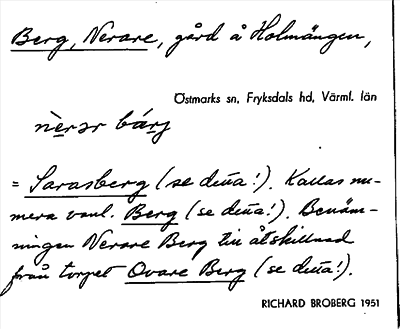 Berg, Nerare, gård å Holmängen,
Östmarks sn, Fryksdals hd, Värml. län
nèrər bárj
= Sarasberg (se detta!). Kallas nu-
mera vanl. Berg (se detta!). Benäm-
ningen Nerare Berg till åtskillnad
från torpet Ovare Berg (se detta!).
RICHARD BROBERG 1951